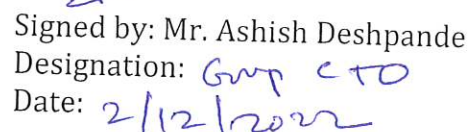 Signed by: Mr. Ashish Deshpande
Designation: Group CTO
Date: 2/12/2022